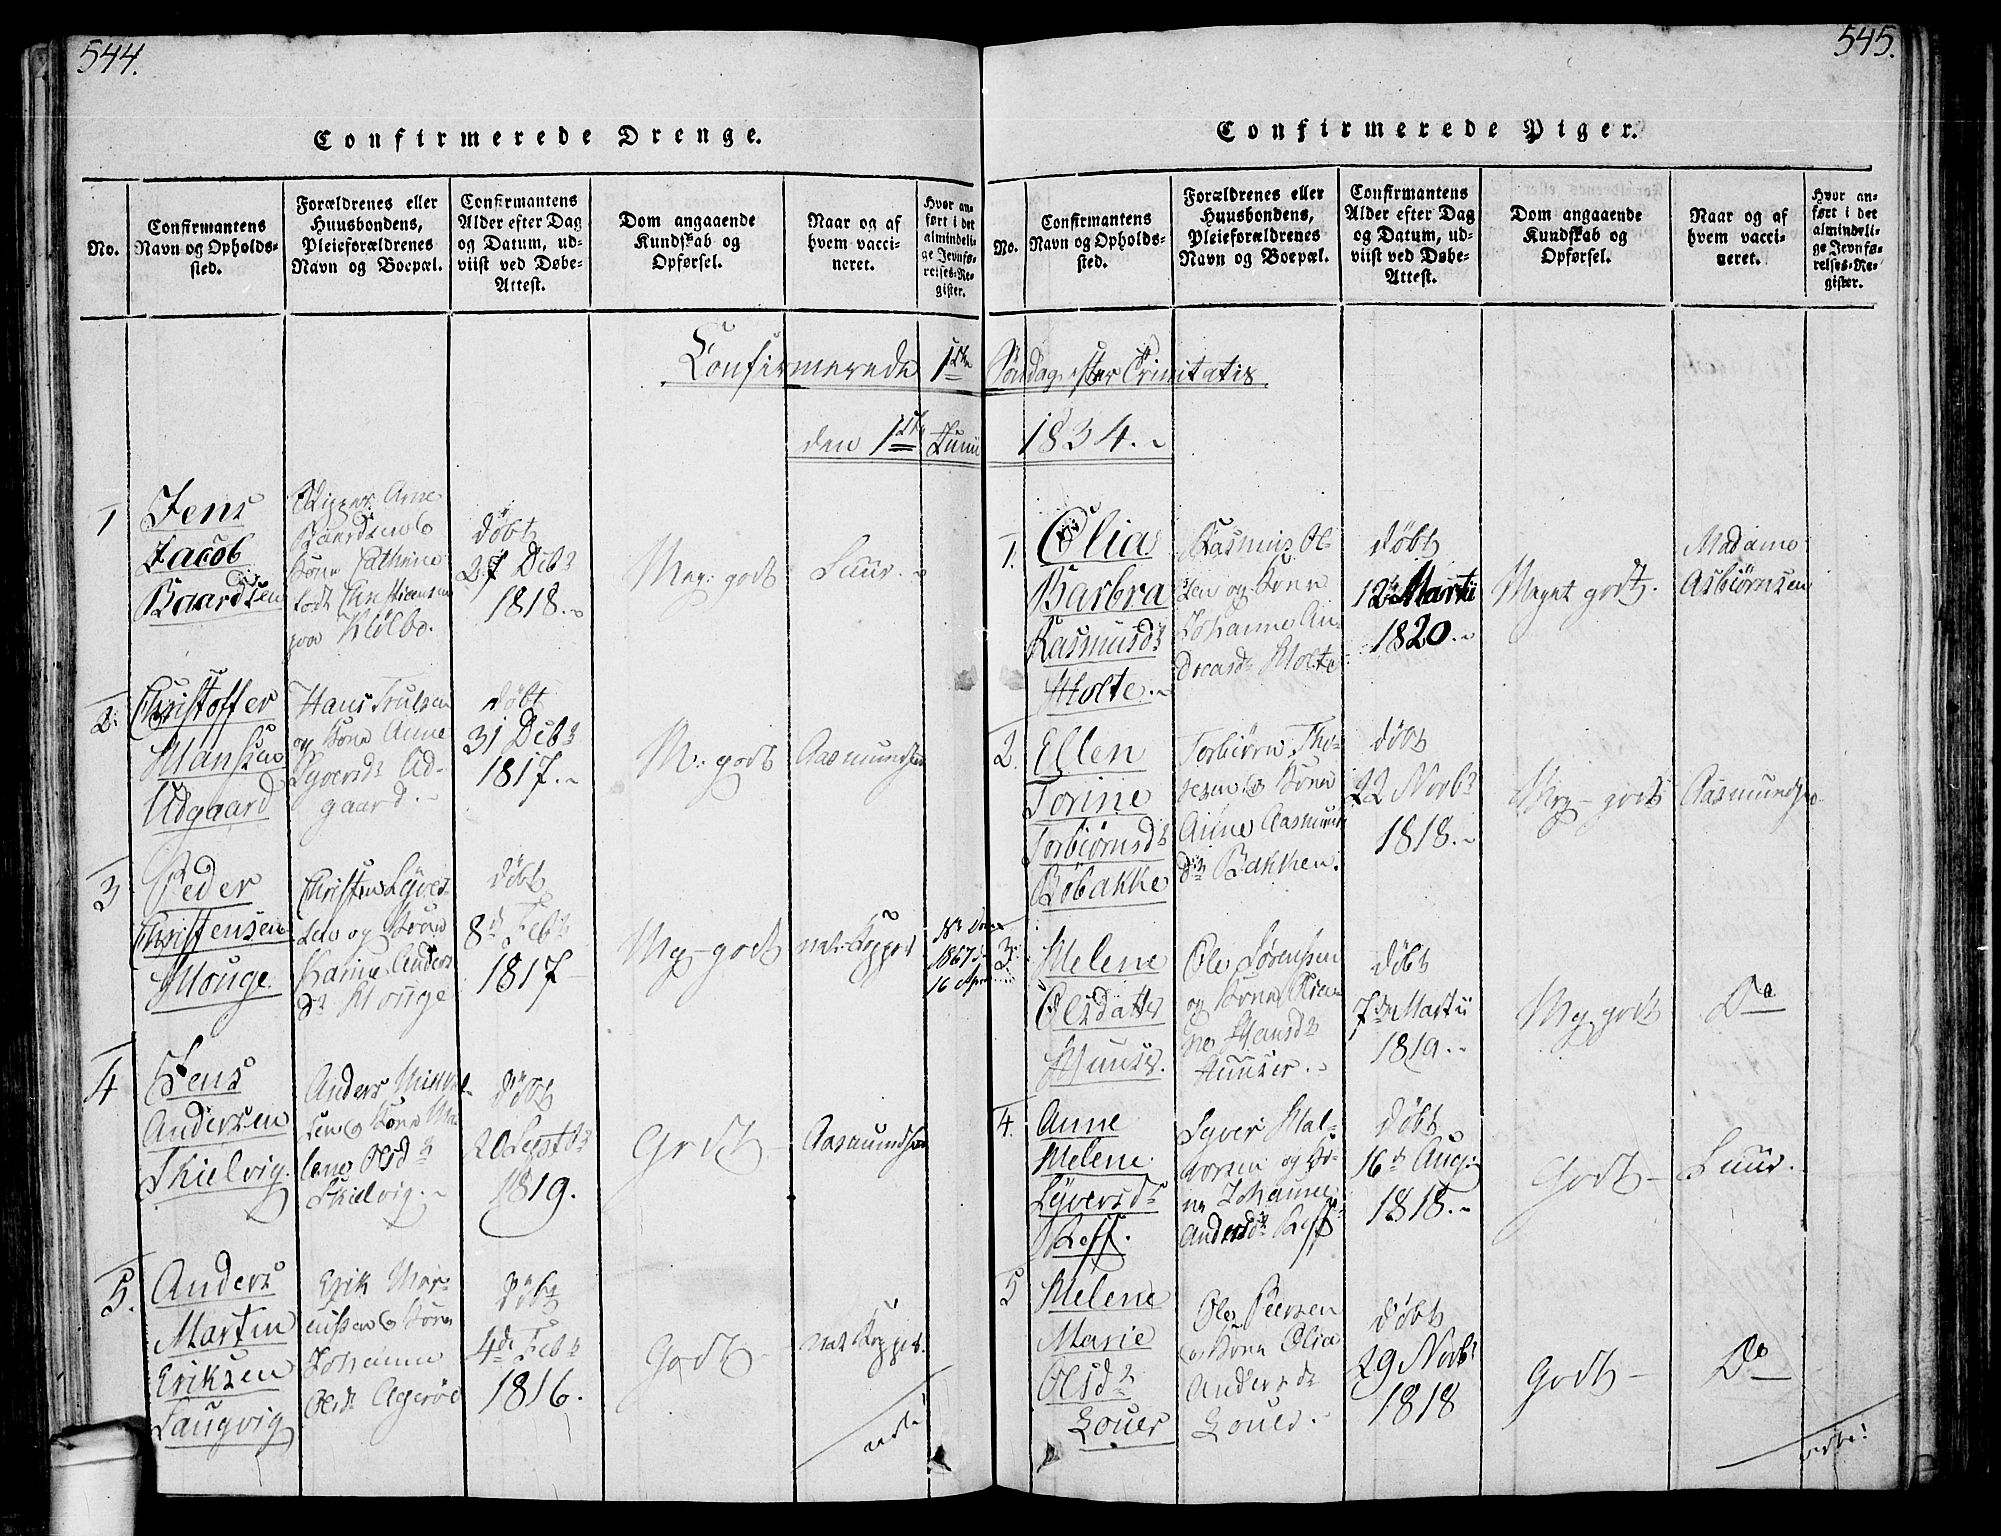 544.
Confirmerede Drenge.
No.
Confirmantens
Navn og Opholds-
sted.
Forældrenes eller
Huusbondens,
Pleieforældrenes
Navn og Boepæl.
Confirmantens
Alder efter Dag
og Datum, ud-
viist ved Døbe-
Attest.
Dom angaaende
Kundskab og
Opførsel.
Naar og af
hvem vacci-
neret.
Hvor an-
ført i det
almindeli-
ge Jevnfø-
relses-Re-
gister.
Confirmerede 1ste
den 1ste Junii
1
Jens
Jacob
Baardsen
Arne
Baardsen &
Kone Cathrine
Christiansen
paa
døbt
27 Debr
1818.
Meg: godt
Luur.
2.
Christoffer
Hansen
Udgaard
Hans Trulsen
og Kone Anne
Syversdr Ud-
gaard.
døbt
31 Debr
1817.
M: godt
Aasmundsen
3
Peder
Christensen
Houge
Christen Syver-
sen og Kone
Karine Anders
dr Houge
døbt
8d Febr
1817
Mg godt
nat: Kopper
1867
16
4
Jens
Andersen
Skielvig.
Anders Mikkel-
sen & Kone Ma
lene Olsdr
Skielvig.
døbt
20 Septbr
1819.
Godt
Aasmundsen
5.
Anders
Martin
Eriksen
Laugvig
Erik Mor-
tensen & Kone
Johanne
Olsdr Agerøe
døbt
4de Febr
1816.
Godt
nat Kopper.
vete!
545.
Confirmerede Piger.
No.
Confirmantens
Navn og Opholds-
sted.
Forældrenes eller
Huusbondens,
Pleieforældrenes
Navn og Boepæl.
Confirmantens
Alder efter Dag
og Datum, ud-
viist ved Døbe-
Attest.
Dom angaaende
Kundskab og
Opførsel.
Naar og af
hvem vacci-
neret.
Hvor an-
ført i det
almindeli-
ge Jevnfø-
relses-Re-
gister.
Søndag efter Trinitatis
1834.
1.
Olia
Barbra
Rasmusdr
Holte.
Rasmus Ol-
sen og Kone
Johanne An-
dreasdr Holte
døbt
12te Martii
1820.
Meget godt.
Madame
Asbiørnsen
2.
Ellen
Torine
Torbiørnsdr
Bøbakke
Torbiørn Tho-
resen & Kone
Anne Aasmun
dr Bakken.
døbt
22 Novbr
1818.
Meg godt
Aasmundsen
3.
Helene
Olsdatter
Huuse.
Ole Sørensen
og Kone
Hansdr
Huuser.
døbt
7de Martii
1819.
Mg. godt
Do
4.
Anne
Helene
Syversdr
Ræff.
Syver Hal-
vorsen og Ko-
ne Johanne
Andersdr Ræff
døbt
16d Aug:
1818.
Godt
Luur.
5
Helene
Marie
Olsdr
Louer
Ole Peersen
& Kone Olia
Andersdr
Louer.
døbt
29 Novbr
1818
Godt
Do
vete!